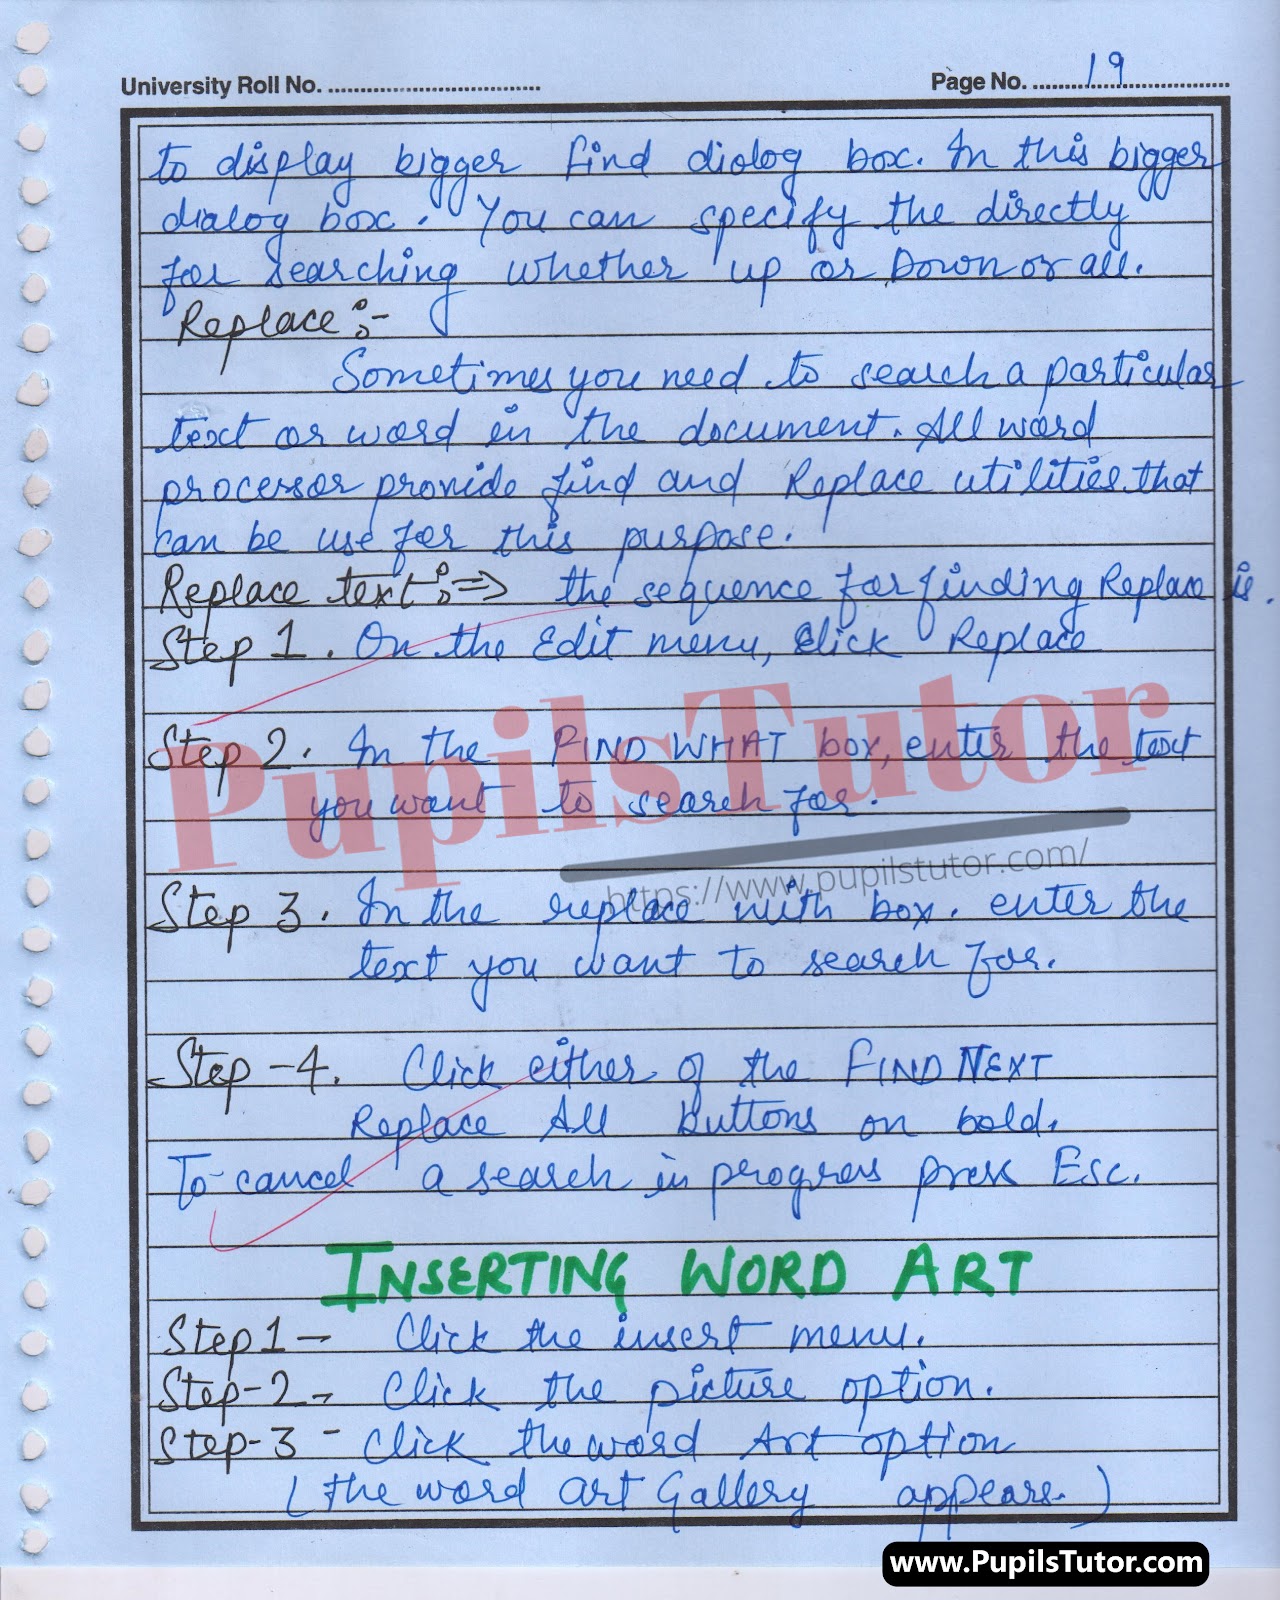 University Roll No. ..................................... Page No. ......19..................
to display bigger find diolog box. In this bigger
dialog box. You can specify the directly
for searching whether up or Down or all.
Replace :-
Sometimes you need to search a particular
text or word in the document. All word
processor provide find and Replace utilities that
can be use for this purpose.
Replace text :=> the sequence for finding Replace is.
Step 1. On the Edit menu, Click Replace
Step 2. In the FIND WHAT box, enter the text
you want to search for.
PupilsTutor
https://www.pupilstutor.com/
Step 3. In the replace with box. enter the
text you want to search for.
Step -4. Click either of the FIND NEXT
Replace All buttons on bold.
To cancel a search in progress press Esc.
INSERTING WORD ART
Step 1 - Click the insert menu.
Step-2 - Click the picture option.
Step-3 - Click the word Art option
(The word art Gallery appears.)
www.PupilsTutor.com